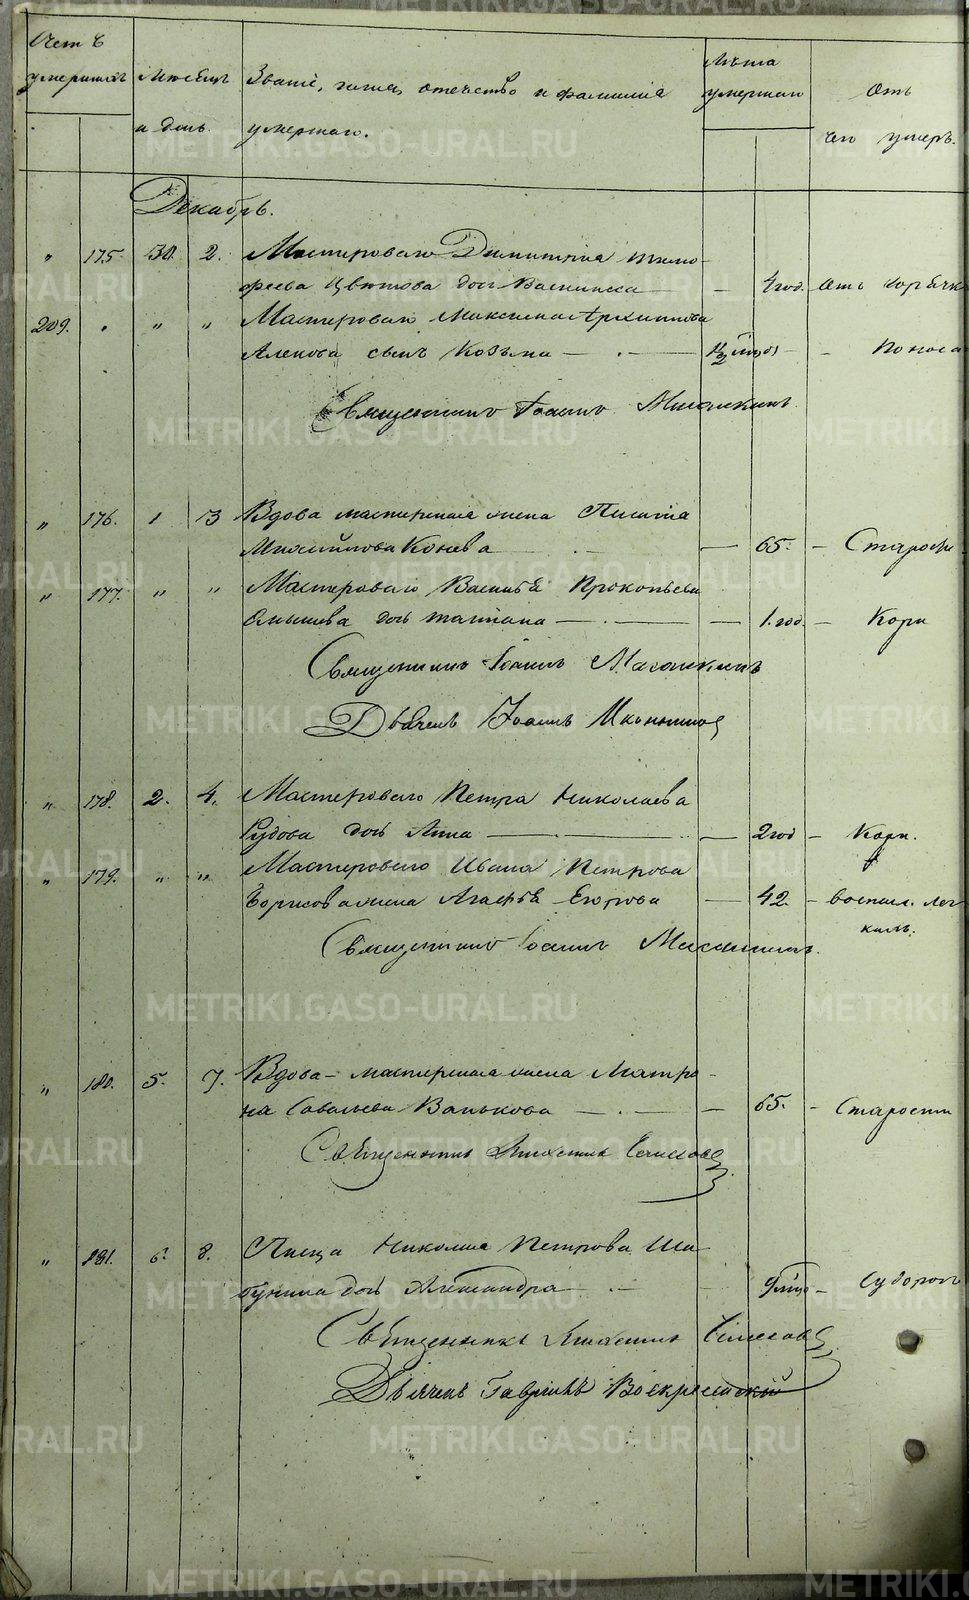 Счетъ умершихъ
Мѣсяцъ и день.
Званіе, имя, отечество и фамилія умершаго.
Лѣта умершаго
Отъ чего умеръ.
Декабрь.
" 175. 30. 2. Мастероваго Димитрія Тимо-
феева Цвѣтова дочь Василиса — 4 год. Отъ горячк
209. " " " Мастероваго Максима Архипова
сынъ Козьма — 1½ — Поноса
Священникъ Іоаннъ
" 176. 1 3 Вдова мастерская жена
Конева — 65. — Старости
" 177. " " Мастероваго Василья Прокопьева
дочь Татіана — 1. год. — Кори
Священникъ Іоаннъ
Дьячекъ Іоаннъ
" 178. 2. 4. Мастероваго Петра Николаева
Рудова дочь Анна — 2 год — Кори.
" 179. " " Мастероваго Ивана Петрова
Борисова жена Агафья Егорова — 42. — воспал. лег
кихъ.
Священникъ Іоаннъ
" 180. 5. 7. Вдова – мастерская жена Матро-
на Савельева Ванькова — 65. — Старости
Священникъ
" 181. 6. 8. Писца Николая Петрова Ша-
бунина дочь Александра — 9 — Судорог
Священникъ
Дьячекъ Гавріилъ Воскресенскій
METRIKI.GASO-URAL.RU